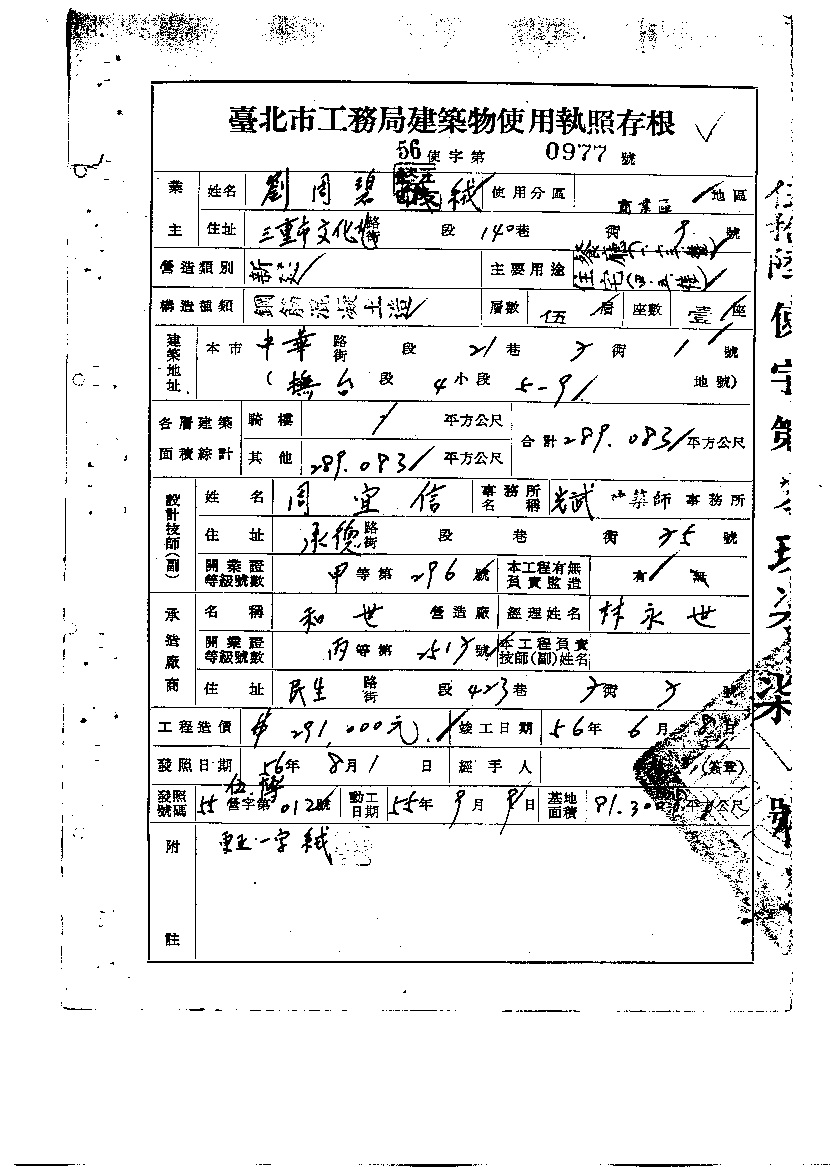 臺北市工務局建築物使用執照存根
56使字第 0977 號
業主 姓名 劉周碧絨 使用分區 商業區 地區
住址 三重市文化 路街 段 140巷 街 號
營造類別 新 主要用途 餐廳(一、二、三樓)
住宅(四、五樓)
構造種類 鋼筋混凝土造 層數 伍層 座數 壹座
建築地址 本市 中華 路街 段 21巷 街 1 號
( 撫台 段 4小段 5-9 地號)
各層建築面積綜計 騎樓 平方公尺 合計 289.083 平方公尺
其他 289.083 平方公尺
設計技師(副) 姓名 周宜信 事務所名稱 光武 築師事務所
住址 承德 路街 段 巷 街 號
開業證等級號數 甲等第 296 號 本工程有無負責監造 有 無
承造廠商 名稱 和世 營造廠 經理姓名 林永世
開業證等級號數 丙等第 號 本工程負責技師(副)姓名
住址 民生 路街 段 423巷 街
工程造價 291,000元 竣工日期 56年 6月 8日
發照日期 56年 8月1日 經手人 (簽章)
發照號碼 55 營字第 012 號 動工日期 55年 9月 日 基地面積 91.30 平方公尺
附註 更正一字 絨
伍拾陸使字第 玖 柒柒 號